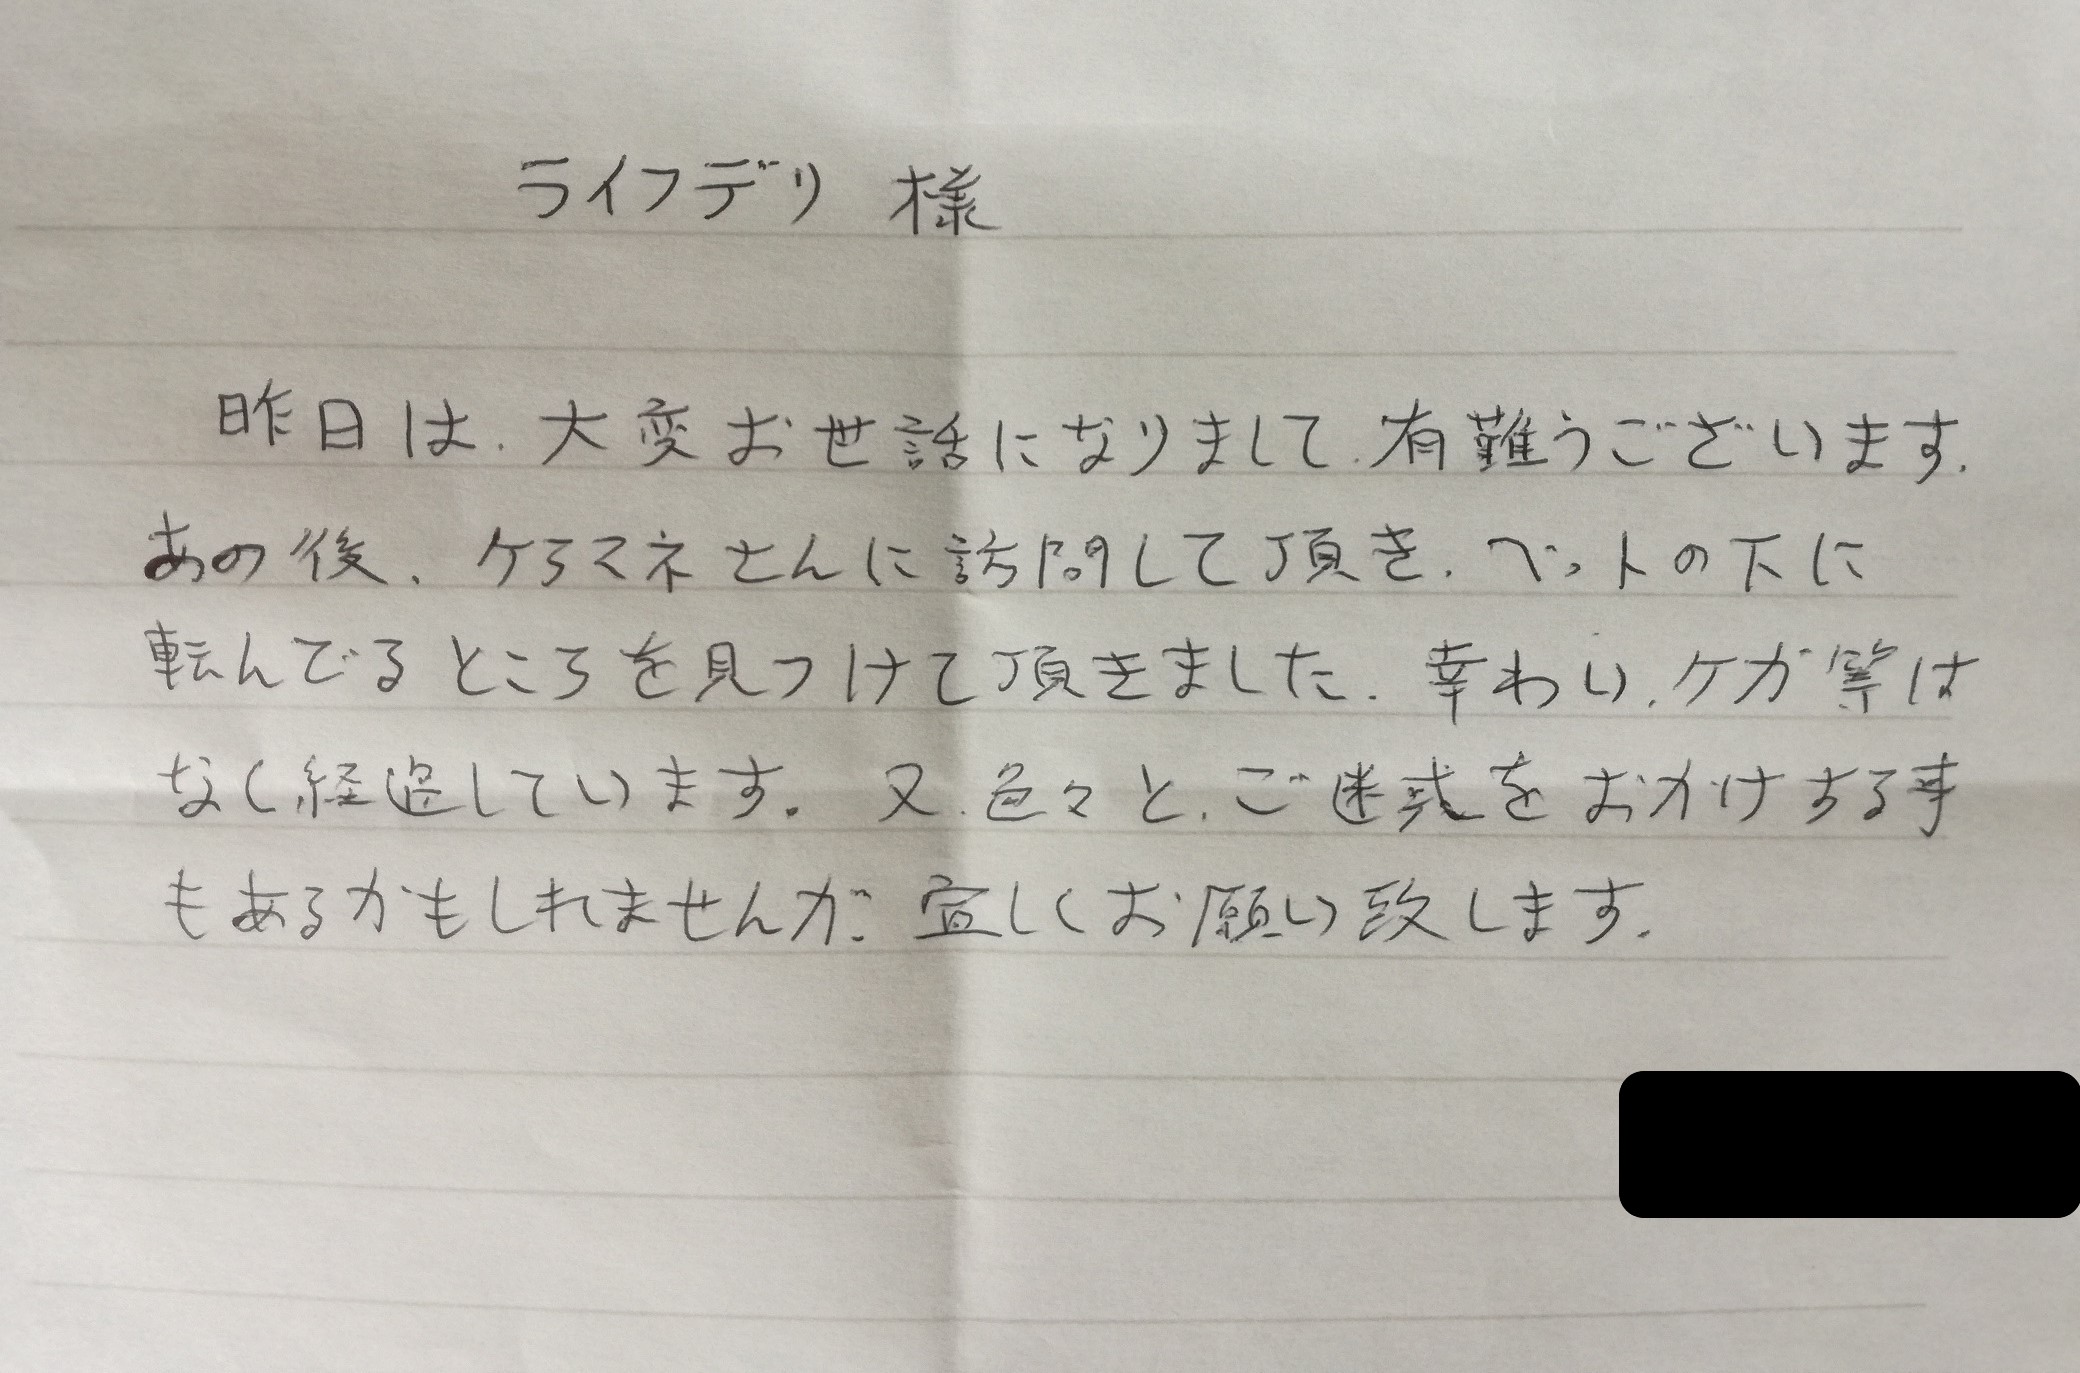 ライフデリ 様
昨日は、大変お世話になりまして、有難うございます。
あの後、ケアマネさんに訪問して頂き、ベットの下に
転んでるところを見つけて頂きました。幸わい、ケガ等は
なく経過しています。又、色々と、ご迷惑をおかけする事
もあるかもしれませんが、宜しくお願い致します。